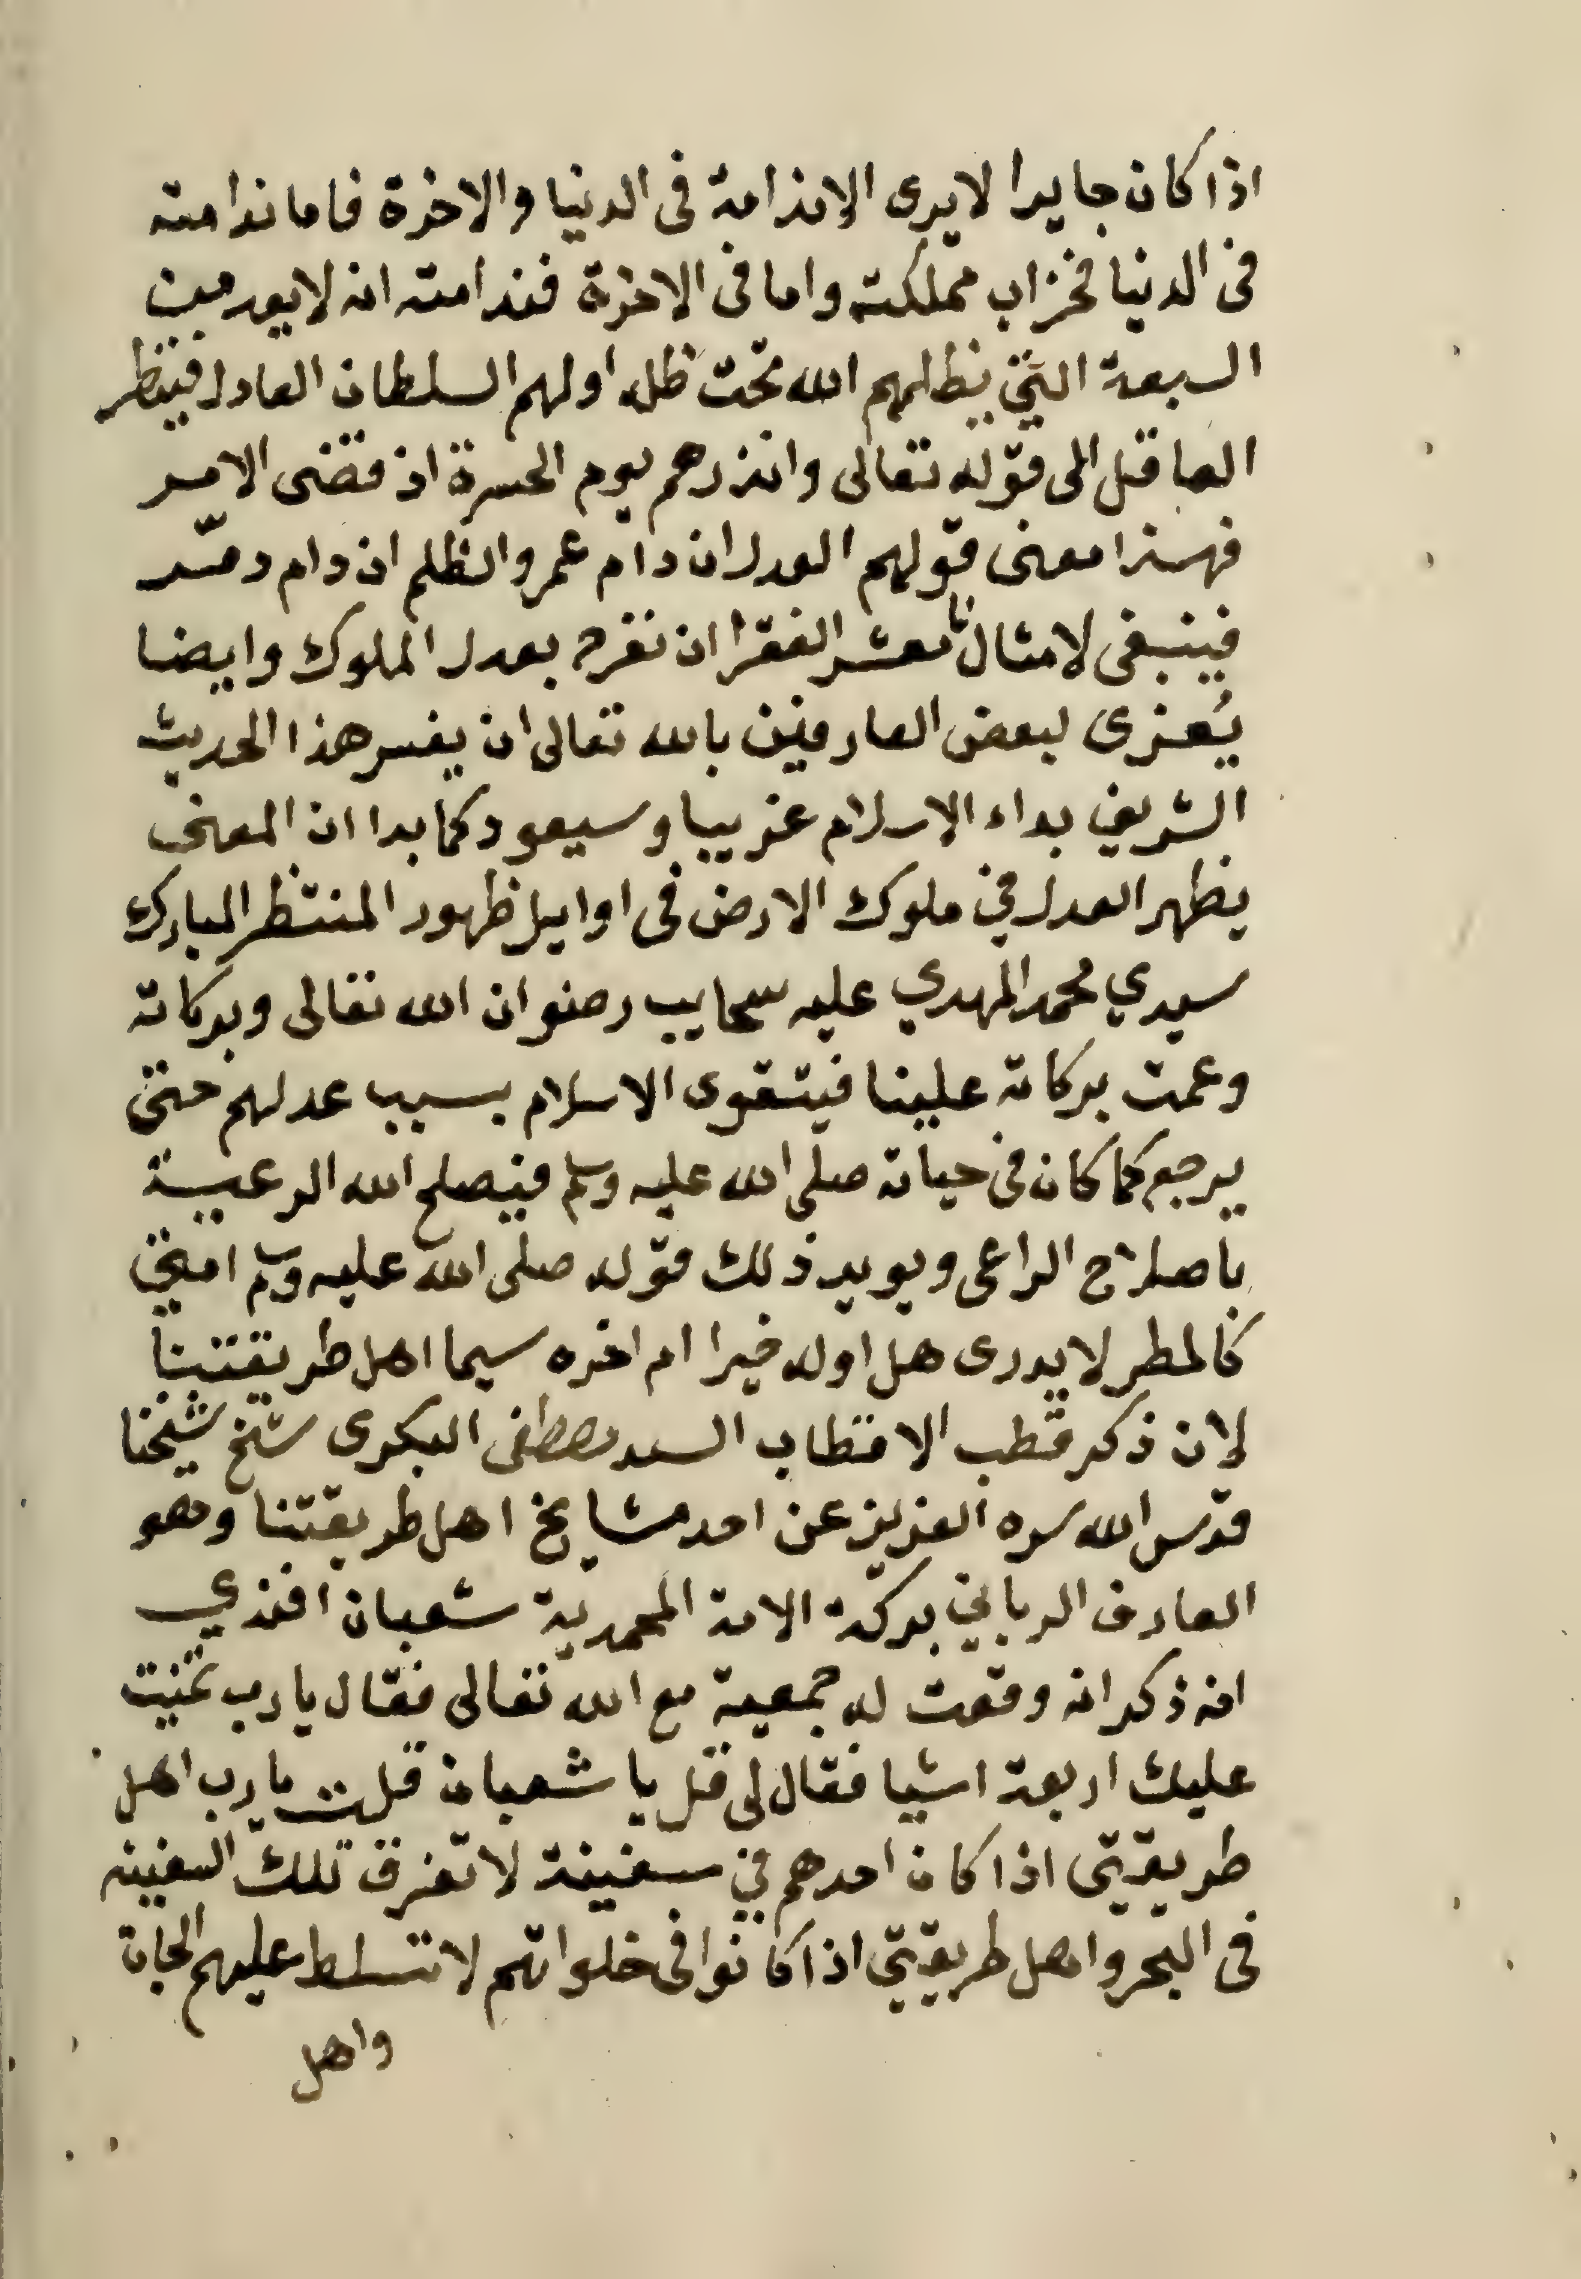 اذا كان جايرا لايرى الاندامة فى الدنيا والاخرة فاما ندامته
فى الدنيا فخراب مملكته واما فى الاخرة فندامته انه لايعد مين
السبعة التي يظلهم الله تحت ظله اولهم السلطان العادل فينظر
العاقل الى قوله تعالى وانذرهم يوم الحسرة اذ قضى الامر
فهذا معنى قولهم العدل ان دام عمر والظلم ان دام دمّر
فينبغى لامثالنا معشر الفقرا ان نفرح بعدل الملوك وايضا
يُعزى لبعض العارفين بالله تعالى ان يفسر هذا الحديث
الشريف بداء الاسلام غريبا وسيعود كما بدا ان المعنى
يظهر العدل في ملوك الارض فى اوايل ظهور المنتظر المبارك
سيدي محمد المهدي عليه سحايب رضوان الله تعالى وبركاته
وعمت بركاته علينا فيتقوى الاسلام بسبب عدلهم حتى
يرجع كما كان فى حياته صلى الله عليه وسلم فيصلح الله الرعية
باصلاح الراعى ويويد ذلك قوله صلى الله عليه وسلم امتي
كالمطر لايدرى هل اوله خيرا ام اخره سيما اهل طريقتنا
لان ذكر قطب الاقطاب السيد مصطفى البكرى شيخ شيخنا
قدس الله سره العزيز عن احد مشايخ اهل طريقتنا وهو
العارف الرباني بركة الامة المحمدية شعبان افندي
انه ذكر انه وقعت له جمعية مع الله تعالى فقال يارب تمنيت
عليك اربعة اشيا فقال لى قل يا شعبان قلت يارب اهل
طريقتى اذا كان احدهم في سفينة لاتغرق تلك السفينه
فى البحر واهل طريقتي اذا كانوا فى خلواتهم لاتتسلط عليهم الجان
واهل